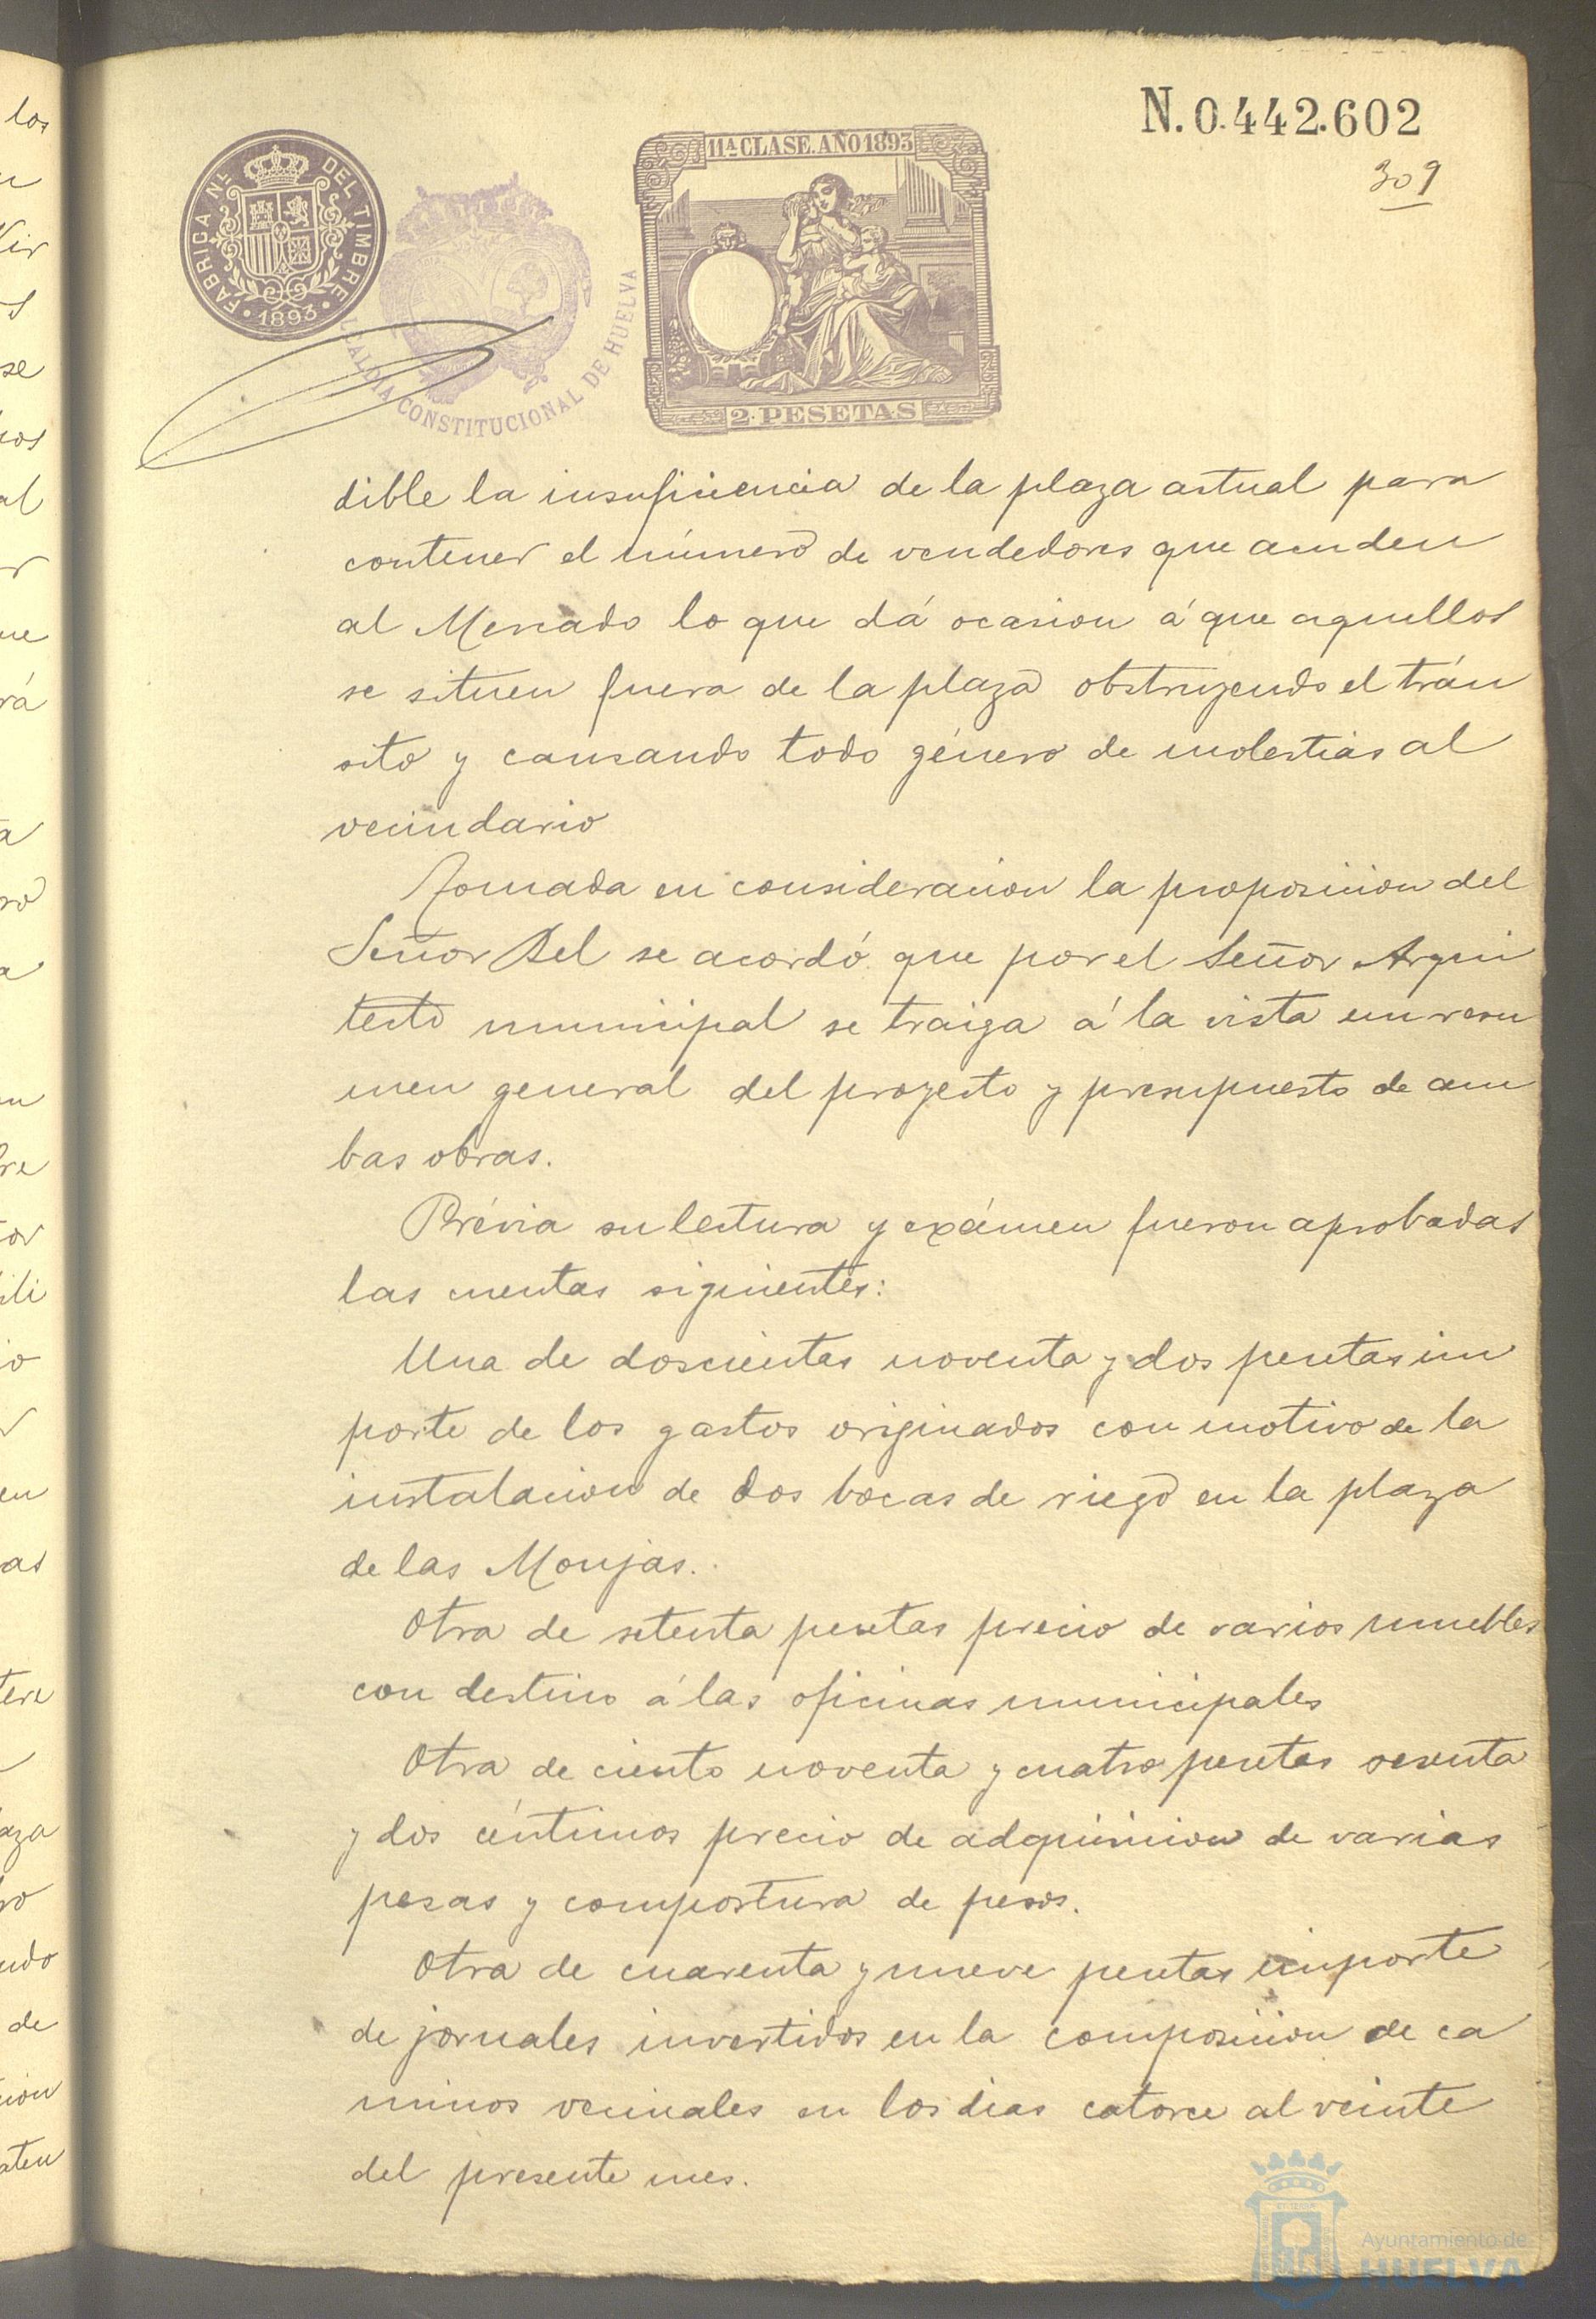 N. 0.442.602
309
11ª CLASE. AÑO 1893
FABRICA NL. DEL TIMBRE
· 1893 ·
ALCALDIA CONSTITUCIONAL DE HUELVA
2 PESETAS
dible la insuficiencia de la plaza actual para
contener el número de vendedores que acuden
al Mercado lo que dá ocasion á que aquellos
se sitúen fuera de la plaza obstruyendo el trán
sito y causando todo género de molestias al
vecindario
Tomada en consideracion la proposicion del
Señor Bel se acordó que por el Señor Arqui
tecto municipal se traiga á la vista un resu
men general del proyecto y presupuesto de am
bas obras.
Prévia su lectura y exámen fueron aprobadas
las cuentas siguientes:
Una de doscientas noventa y dos pesetas im
porte de los gastos originados con motivo de la
instalacion de dos bocas de riego en la plaza
de las Monjas.
Otra de setenta pesetas precio de varios muebles
con destino á las oficinas municipales
Otra de ciento noventa y cuatro pesetas sesenta
y dos céntimos precio de adquisicion de varias
pesas y compostura de pesos.
Otra de cuarenta y nueve pesetas importe
de jornales invertidos en la composicion de ca
minos vecinales en los dias catorce al veinte
del presente mes.
Ayuntamiento de
HUELVA